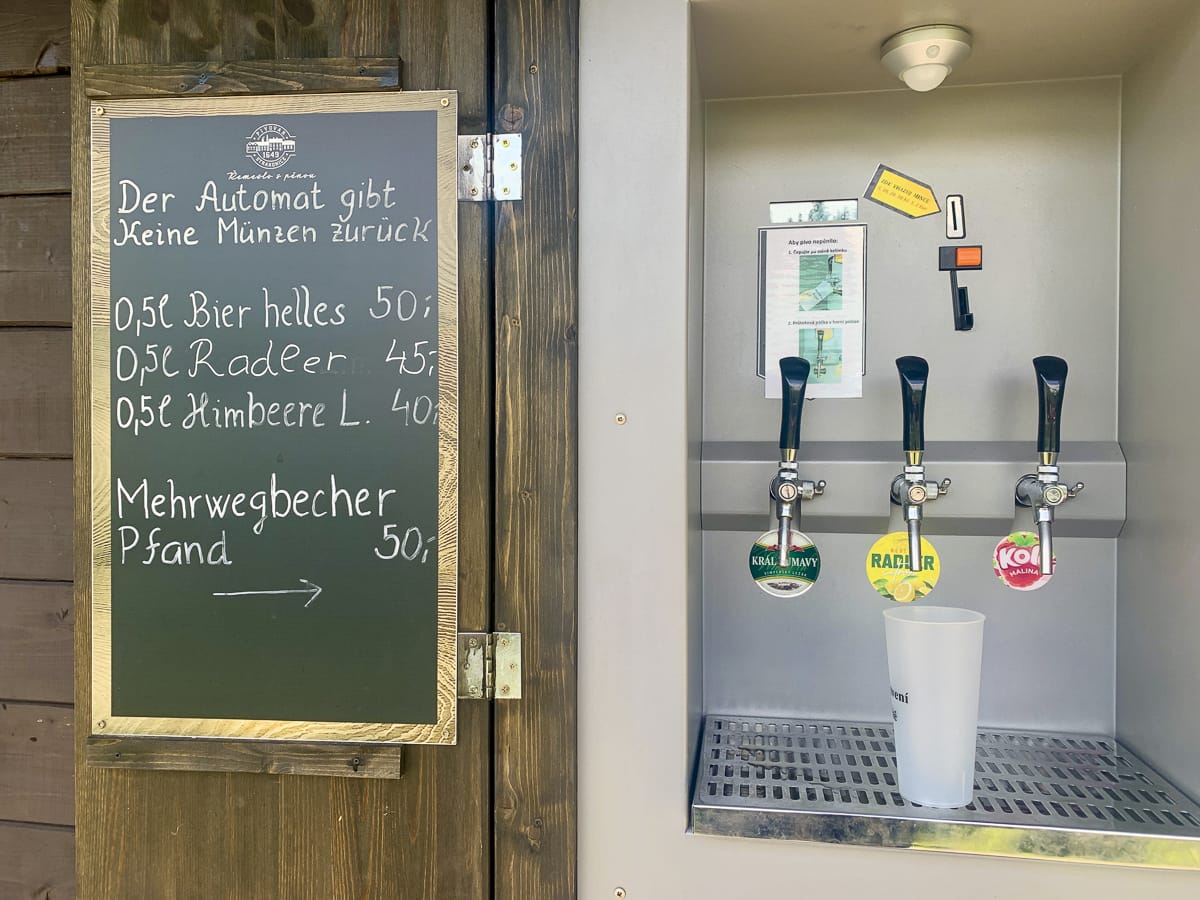 PIVOVAR
1649
STRAKONICE
Řemeslo s pěnou
Der Automat gibt
Keine Münzen zurück
0,5l Bier helles 50,-
0,5l Radler 45,-
0,5l Himbeere L. 40,-
Mehrwegbecher
Pfand 50,-
ZDE VKLÁDEJ MINCE
Aby pivo nepěnilo:
1. Čepujte po stěně kelímku
KRÁL ŠUMAVY
RADLER
MALINA